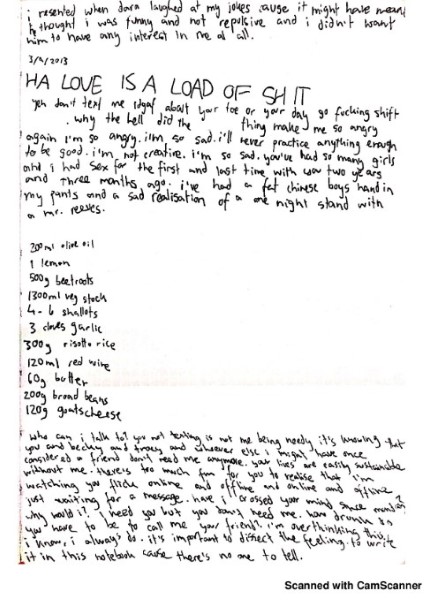 i resented when dara laughed at my jokes cause it might have meant
he thought i was funny and not repulsive and i didn't want
him to have any interest in me at all.
3/2/2013
HA LOVE IS A LOAD OF SHIT
yeh don't text me idgaf about your toe or your day go fucking shift
. why the hell did the thing make me so angry
again i'm so angry. i'm so sad. i'll never practice anything enough
to be good. i'm not creative. i'm so sad. you've had so many girls
and i had sex for the first and last time with you two years
and three months ago. i've had a fat chinese boys hand in
my pants and a sad realisation of a one night stand with
a mr. reeves.
200ml olive oil
1 lemon
500g beetroots
1300ml veg stock
4-6 shallots
3 cloves garlic
300g risotto rice
120ml red wine
60g butter
200g broad beans
120g goats cheese
who can i talk to? you not texting is not me being needy it's knowing that
you and becky and tracy and whoever else i might have once
considered a friend don't need me anymore. your lives are easily sustainable
without me. there's too much fun for you to realise that i'm
watching you flick online and offline and online and offline
just waiting for a message. have i crossed your mind since monday?
why would i? i need you but you don't need me. how drunk do
you have to be to call me your friend? i'm overthinking this,
i know, i always do. it's important to dissect the feeling. to write
it in this notebook cause there's no one to tell.
Scanned with CamScanner